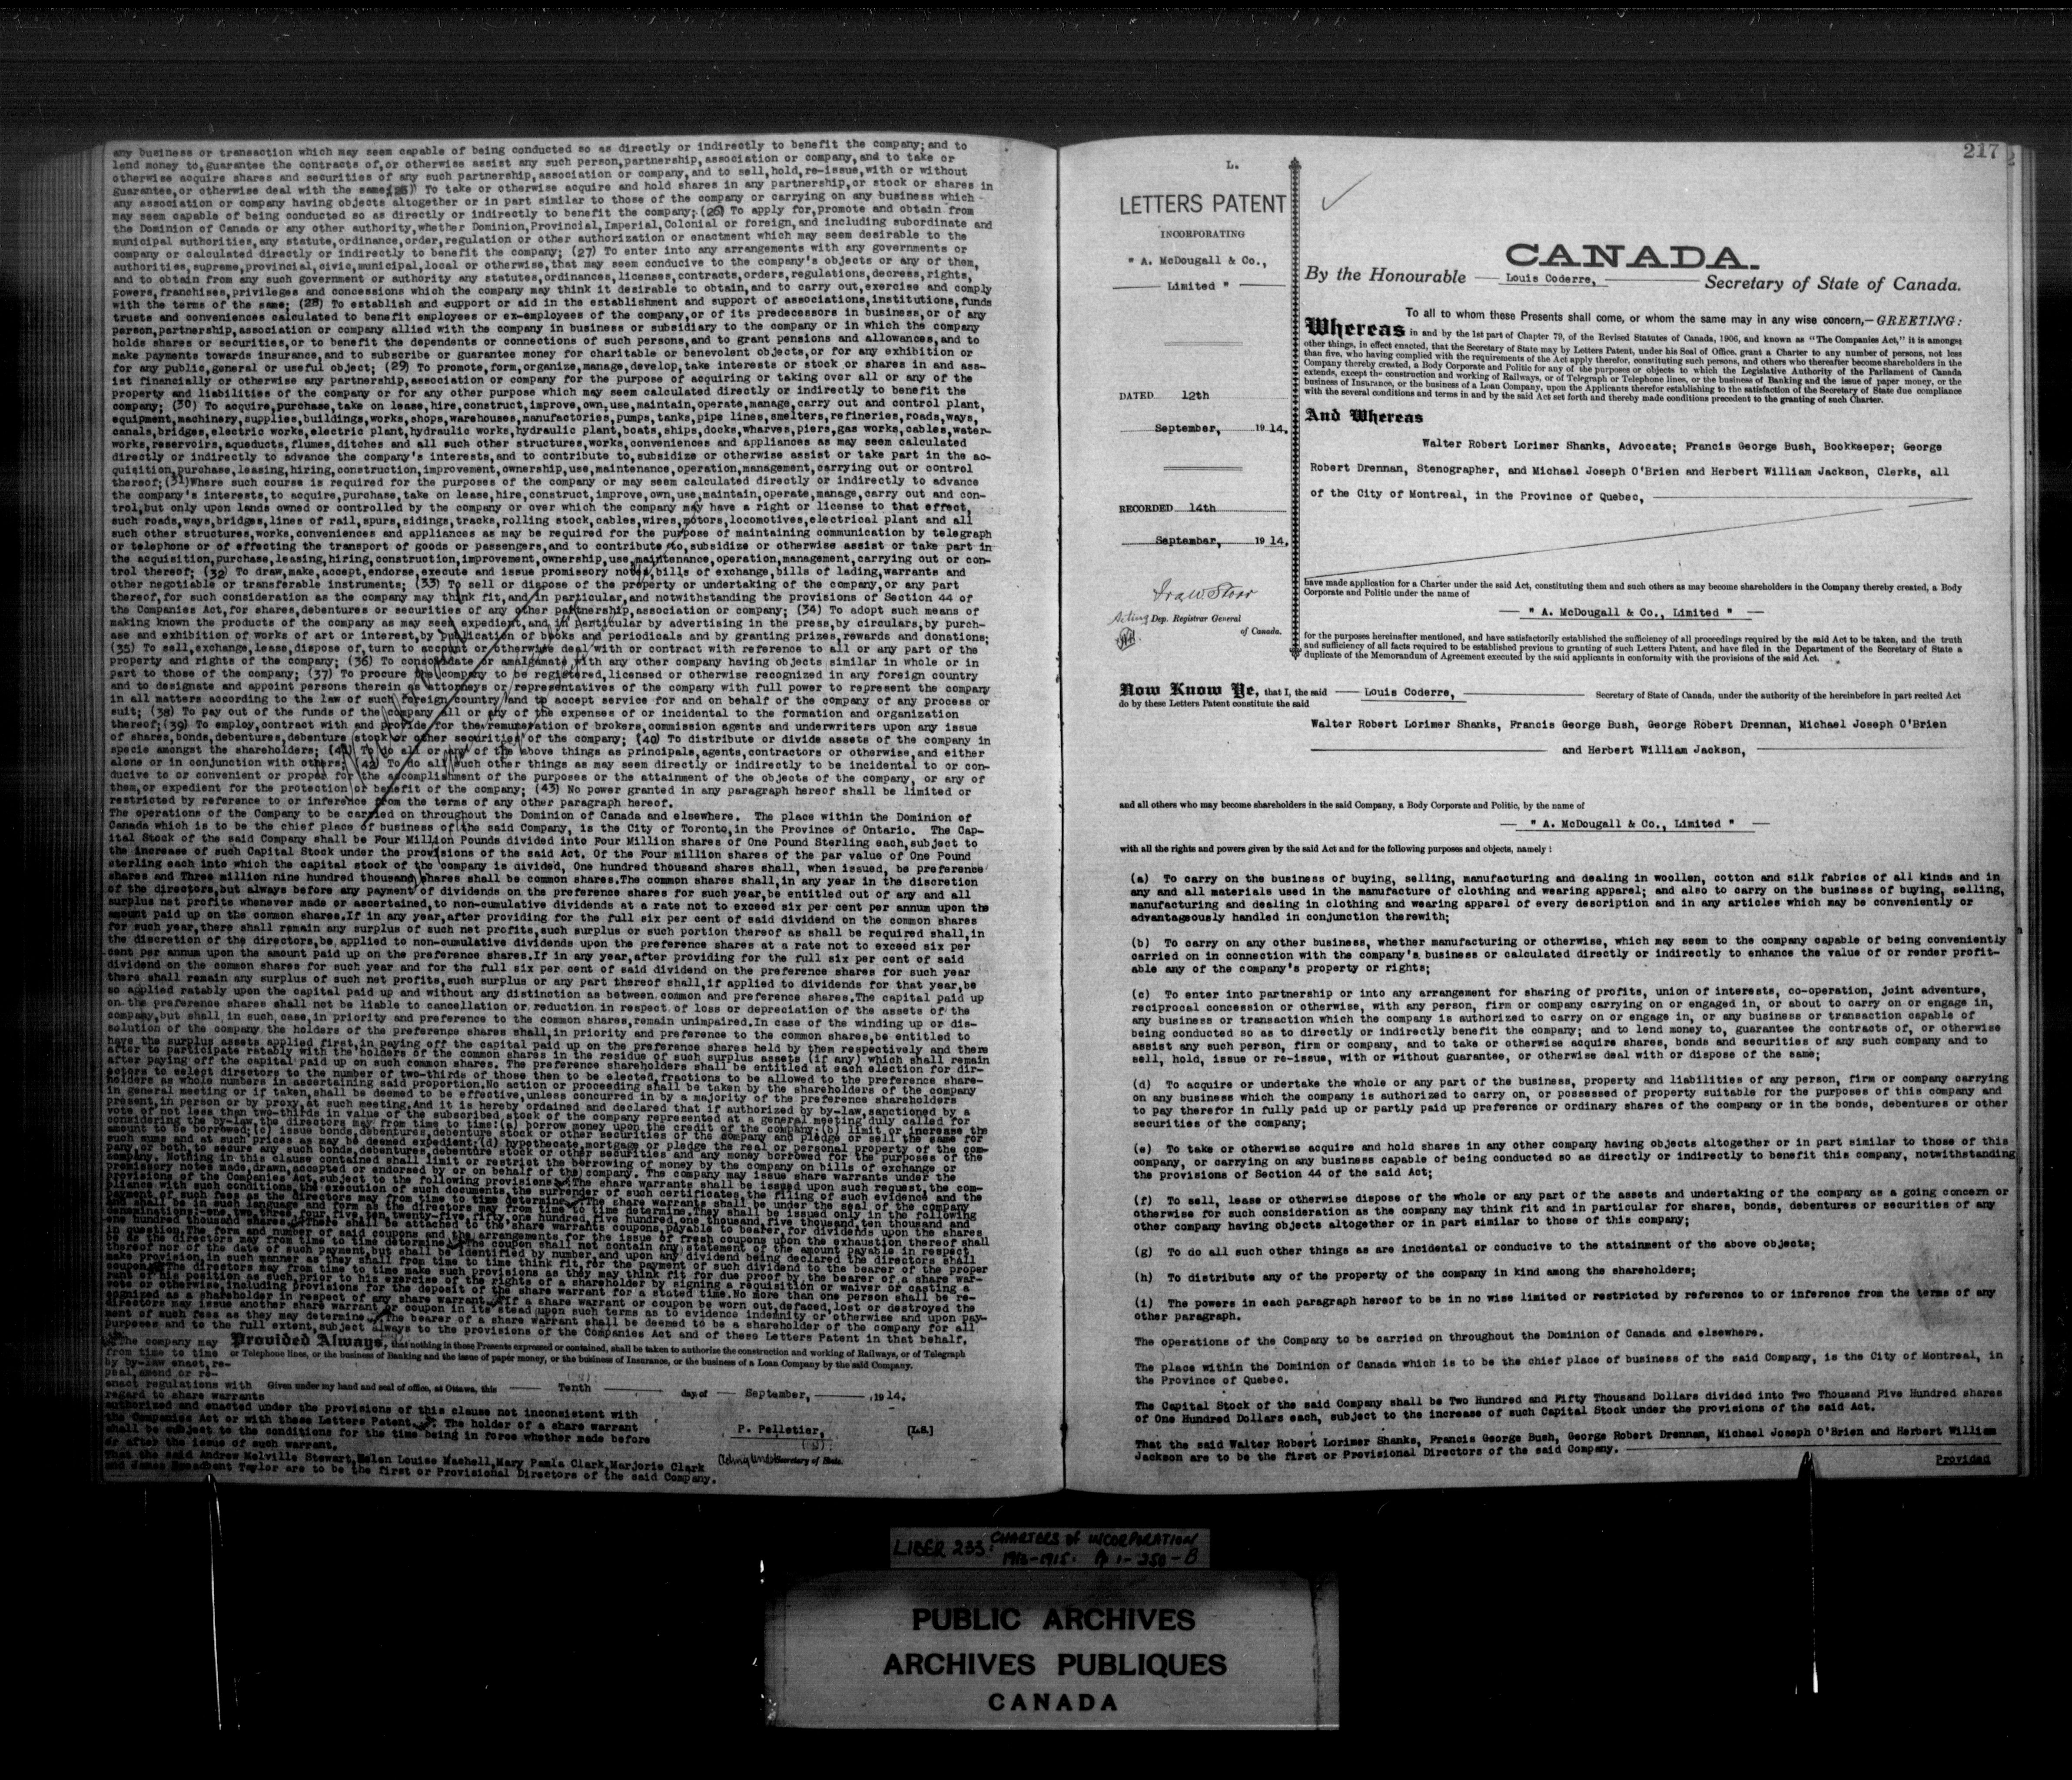 any business or transaction which may seem capable of being conducted so as directly or indirectly to benefit the company; and to
lend money to,guarantee the contracts of,or otherwise assist any such person,partnership,association or company,and to take or
otherwise acquire shares and securities of any such partnership,association or company,and to sell,hold,re-issue,with or without
guarantee,or otherwise deal with the same;(25) To take or otherwise acquire and hold shares in any partnership,or stock or shares in
any association or company having objects altogether or in part similar to those of the company or carrying on any business which
may seem capable of being conducted so as directly or indirectly to benefit the company; (26) To apply for,promote and obtain from
the Dominion of Canada or any other authority,whether Dominion,Provincial,Imperial,Colonial or foreign,and including subordinate and
municipal authorities,any statute,ordinance,order,regulation or other authorization or enactment which may seem desirable to the
company or calculated directly or indirectly to benefit the company; (27) To enter into any arrangements with any governments or
authorities,supreme,provincial,civic,municipal,local or otherwise,that may seem conducive to the company's objects or any of them,
and to obtain from any such government or authority any statutes,ordinances,licenses,contracts,orders,regulations,decress,rights,
powers,franchises,privileges and concessions which the company may think it desirable to obtain,and to carry out,exercise and comply
with the terms of the same; (28) To establish and support or aid in the establishment and support of associations,institutions,funds
trusts and conveniences calculated to benefit employees or ex-employees of the company,or of its predecessors in business,or of any
person,partnership,association or company allied with the company in business or subsidiary to the company or in which the company
holds shares or securities,or to benefit the dependents or connections of such persons,and to grant pensions and allowances,and to
make payments towards insurance,and to subscribe or guarantee money for charitable or benevolent objects,or for any exhibition or
for any public,general or useful object; (29) To promote,form,organize,manage,develop,take interests or stock or shares in and ass-
ist financially or otherwise any partnership,association or company for the purpose of acquiring or taking over all or any of the
property and liabilities of the company or for any other purpose which may seem calculated directly or indirectly to benefit the
company; (30) To acquire,purchase,take on lease,hire,construct,improve,own,use,maintain,operate,manage,carry out and control plant,
equipment,machinery,supplies,buildings,works,shops,warehouses,manufactories,pumps,tanks,pipe lines,smelters,refineries,roads,ways,
canals,bridges,electric works,electric plant,hydraulic works,hydraulic plant,boats,ships,docks,wharves,piers,gas works,cables,water-
works,reservoirs,aqueducts,flumes,ditches and all such other structures,works,conveniences and appliances as may seem calculated
directly or indirectly to advance the company's interests,and to contribute to,subsidize or otherwise assist or take part in the ac-
quisition,purchase,leasing,hiring,construction,improvement,ownership,use,maintenance,operation,management,carrying out or control
thereof;(31)Where such course is required for the purposes of the company or may seem calculated directly or indirectly to advance
the company's interests,to acquire,purchase,take on lease,hire,construct,improve,own,use,maintain,operate,manage,carry out and con-
trol,but only upon lands owned or controlled by the company or over which the company may have a right or license to that effect,
such roads,ways,bridges,lines of rail,spurs,sidings,tracks,rolling stock,cables,wires,motors,locomotives,electrical plant and all
such other structures,works,conveniences and appliances as may be required for the purpose of maintaining communication by telegraph
or telephone or of effecting the transport of goods or passengers,and to contribute to,subsidize or otherwise assist or take part in
the acquisition,purchase,leasing,hiring,construction,improvement,ownership,use,maintenance,operation,management,carrying out or con-
trol thereof; (32 To draw,make,accept,endorse,execute and issue promissory notes,bills of exchange,bills of lading,warrants and
other negotiable or transferable instruments; (33) To sell or dispose of the property or undertaking of the company,or any part
thereof,for such consideration as the company may think fit,and in particular,and notwithstanding the provisions of Section 44 of
the Companies Act,for shares,debentures or securities of any other partnership,association or company; (34) To adopt such means of
making known the products of the company as may seem expedient,and in particular by advertising in the press,by circulars,by purch-
ase and exhibition of works of art or interest,by publication of books and periodicals and by granting prizes,rewards and donations;
(35) To sell,exchange,lease,dispose of,turn to account or otherwise deal with or contract with reference to all or any part of the
property and rights of the company; (36) To consolidate or amalgamate with any other company having objects similar in whole or in
part to those of the company; (37) To procure the company to be registered,licensed or otherwise recognized in any foreign country
and to designate and appoint persons therein as attorneys or representatives of the company with full power to represent the company
in all matters according to the law of such foreign country and to accept service for and on behalf of the company of any process or
suit; (38) To pay out of the funds of the company all or any of the expenses of or incidental to the formation and organization
thereof;(39) To employ,contract with and provide for the remuneration of brokers,commission agents and underwriters upon any issue
of shares,bonds,debentures,debenture stock or other securities of the company; (40) To distribute or divide assets of the company in
specie amongst the shareholders; (41) To do all or any of the above things as principals,agents,contractors or otherwise,and either
alone or in conjunction with others; (42) To do all such other things as may seem directly or indirectly to be incidental to or con-
ducive to or convenient or proper for the accomplishment of the purposes or the attainment of the objects of the company, or any of
them,or expedient for the protection or benefit of the company; (43) No power granted in any paragraph hereof shall be limited or
restricted by reference to or inference from the terms of any other paragraph hereof.
The operations of the Company to be carried on throughout the Dominion of Canada and elsewhere. The place within the Dominion of
Canada which is to be the chief place of business of the said Company, is the City of Toronto,in the Province of Ontario. The Cap-
ital Stock of the said Company shall be Four Million Pounds divided into Four Million shares of One Pound Sterling each,subject to
the increase of such Capital Stock under the provisions of the said Act. Of the Four million shares of the par value of One Pound
sterling each into which the capital stock of the company is divided, One hundred thousand shares shall, when issued, be preference
shares and Three million nine hundred thousand shares shall be common shares.The common shares shall,in any year in the discretion
of the directors,but always before any payment of dividends on the preference shares for such year,be entitled out of any and all
surplus net profits whenever made or ascertained,to non-cumulative dividends at a rate not to exceed six per cent per annum upon the
amount paid up on the common shares.If in any year,after providing for the full six per cent of said dividend on the common shares
for such year,there shall remain any surplus of such net profits,such surplus or such portion thereof as shall be required shall,in
the discretion of the directors,be applied to non-cumulative dividends upon the preference shares at a rate not to exceed six per
cent per annum upon the amount paid up on the preference shares.If in any year,after providing for the full six per cent of said
dividend on the common shares for such year and for the full six per cent of said dividend on the preference shares for such year
there shall remain any surplus of such net profits,such surplus or any part thereof shall,if applied to dividends for that year,be
so applied ratably upon the capital paid up and without any distinction as between common and preference shares.The capital paid up
on the preference shares shall not be liable to cancellation or reduction in respect of loss or depreciation of the assets of the
company,but shall in such case,in priority and preference to the common shares,remain unimpaired.In case of the winding up or dis-
solution of the company the holders of the preference shares shall,in priority and preference to the common shares,be entitled to
have the surplus assets applied first,in paying off the capital paid up on the preference shares held by them respectively and there
after to participate ratably with the holders of the common shares in the residue of such surplus assets (if any) which shall remain
after paying off the capital paid up on such common shares. The preference shareholders shall be entitled at each election for dir-
ectors to select directors to the number of two-thirds of those then to be elected,fractions to be allowed to the preference share-
holders as whole numbers in ascertaining said proportion.No action or proceeding shall be taken by the shareholders of the company
in general meeting or if taken,shall be deemed to be effective,unless concurred in by a majority of the preference shareholders
present,in person or by proxy,at such meeting.And it is hereby ordained and declared that if authorized by by-law,sanctioned by a
vote of not less than two-thirds in value of the subscribed stock of the company represented at a general meeting duly called for
considering the by-law,the directors may from time to time:(a) borrow money upon the credit of the company;(b) limit or increase the
amount to be borrowed;(c) issue bonds,debentures,debenture stock or other securities of the company and pledge or sell the same for
such sums and at such prices as may be deemed expedient;(d) hypothecate,mortgage or pledge the real or personal property of the com-
pany,or both,to secure any such bonds,debentures,debenture stock or other securities and any money borrowed for the purposes of the
company. Nothing in this clause contained shall limit or restrict the borrowing of money by the company on bills of exchange or
promissory notes made,drawn,accepted or endorsed by or on behalf of the company. The company may issue share warrants under the
provisions of the Companies Act,subject to the following provisions. The share warrants shall be issued upon such request,the com-
pliance with such conditions,the execution of such documents,the surrender of such certificates,the filing of such evidence and the
payment of such fees as the directors may from time to time determine. The share warrants shall be under the seal of the company
and shall be in such language and form as the directors may from time to time determine.They shall be issued only in the following
denominations:-one,two,three,four,five,ten,twenty-five,fifty,one hundred,five hundred,one thousand,five thousand,ten thousand and
one hundred thousand shares. There shall be attached to the share warrants coupons,payable to bearer,for dividends upon the shares
in question.The form and number of said coupons and the arrangements for the issue of fresh coupons upon the exhaustion thereof shall
be as the directors may from time to time determine. The coupon shall not contain any statement of the amount payable in respect
thereof nor of the date of such payment,but shall be identified by number,and upon any dividend being declared the directors shall
make provision,in such manner as they shall from time to time think fit,for the payment of such dividend to the bearer of the proper
coupon. The directors may from time to time make such provisions as they may think fit for due proof by the bearer of a share war-
rant of his position as such,prior to his exercise of the rights of a shareholder by signing a requisition or waiver or casting a
vote or otherwise,including provisions for the deposit of the share warrant for a stated time.No more than one person shall be re-
cognized as a shareholder in respect of any share warrant. If a share warrant or coupon be worn out,defaced,lost or destroyed the
directors may issue another share warrant or coupon in its stead upon such terms as to evidence indemnity or otherwise and upon pay-
ment of such fees as they may determine. The bearer of a share warrant shall be deemed to be a shareholder of the company for all
purposes and to the full extent,subject always to the provisions of the Companies Act and of these Letters Patent in that behalf.
The company may Provided Always, that nothing in these Presents expressed or contained, shall be taken to authorize the construction and working of Railways, or of Telegraph
from time to time or Telephone lines, or the business of Banking and the issue of paper money, or the business of Insurance, or the business of a Loan Company by the said Company.
by by-law enact,re-
peal,amend or re-
enact regulations with Given under my hand and seal of office, at Ottawa, this Tenth day of September, 1914.
regard to share warrants
authorized and enacted under the provisions of this clause not inconsistent with
the Companies Act or with these Letters Patent. The holder of a share warrant
shall be subject to the conditions for the time being in force whether made before
or after the issue of such warrant.
P. Pelletier, [L.S.]
Acting Under Secretary of State.
That the said Andrew Melville Stewart,Helen Louise Machell,Mary Pamla Clark,Marjorie Clark
and James Broadbent Taylor are to be the first or Provisional Directors of the said Company.
217
L.
LETTERS PATENT
INCORPORATING
" A. McDougall & Co.,
Limited "
DATED 12th
September, 1914.
RECORDED 14th
September, 1914.
Acting Dep. Registrar General
of Canada.
CANADA.
By the Honourable Louis Coderre, Secretary of State of Canada.
To all to whom these Presents shall come, or whom the same may in any wise concern,—GREETING:
Whereas in and by the 1st part of Chapter 79, of the Revised Statutes of Canada, 1906, and known as "The Companies Act," it is amongst
other things, in effect enacted, that the Secretary of State may by Letters Patent, under his Seal of Office, grant a Charter to any number of persons, not less
than five, who having complied with the requirements of the Act apply therefor, constituting such persons, and others who thereafter become shareholders in the
Company thereby created, a Body Corporate and Politic for any of the purposes or objects to which the Legislative Authority of the Parliament of Canada
extends, except the construction and working of Railways, or of Telegraph or Telephone lines, or the business of Banking and the issue of paper money, or the
business of Insurance, or the business of a Loan Company, upon the Applicants therefor establishing to the satisfaction of the Secretary of State due compliance
with the several conditions and terms in and by the said Act set forth and thereby made conditions precedent to the granting of such Charter.
And Whereas
Walter Robert Lorimer Shanks, Advocate; Francis George Bush, Bookkeeper; George
Robert Drennan, Stenographer, and Michael Joseph O'Brien and Herbert William Jackson, Clerks, all
of the City of Montreal, in the Province of Quebec,
have made application for a Charter under the said Act, constituting them and such others as may become shareholders in the Company thereby created, a Body
Corporate and Politic under the name of
" A. McDougall & Co., Limited "
for the purposes hereinafter mentioned, and have satisfactorily established the sufficiency of all proceedings required by the said Act to be taken, and the truth
and sufficiency of all facts required to be established previous to granting of such Letters Patent, and have filed in the Department of the Secretary of State a
duplicate of the Memorandum of Agreement executed by the said applicants in conformity with the provisions of the said Act.
Now Know Ye, that I, the said Louis Coderre, Secretary of State of Canada, under the authority of the hereinbefore in part recited Act
do by these Letters Patent constitute the said
Walter Robert Lorimer Shanks, Francis George Bush, George Robert Drennan, Michael Joseph O'Brien
and Herbert William Jackson,
and all others who may become shareholders in the said Company, a Body Corporate and Politic, by the name of
" A. McDougall & Co., Limited "
with all the rights and powers given by the said Act and for the following purposes and objects, namely:
(a) To carry on the business of buying, selling, manufacturing and dealing in woollen, cotton and silk fabrics of all kinds and in
any and all materials used in the manufacture of clothing and wearing apparel; and also to carry on the business of buying, selling,
manufacturing and dealing in clothing and wearing apparel of every description and in any articles which may be conveniently or
advantageously handled in conjunction therewith;
(b) To carry on any other business, whether manufacturing or otherwise, which may seem to the company capable of being conveniently
carried on in connection with the company's business or calculated directly or indirectly to enhance the value of or render profit-
able any of the company's property or rights;
(c) To enter into partnership or into any arrangement for sharing of profits, union of interests, co-operation, joint adventure,
reciprocal concession or otherwise, with any person, firm or company carrying on or engaged in, or about to carry on or engage in,
any business or transaction which the company is authorized to carry on or engage in, or any business or transaction capable of
being conducted so as to directly or indirectly benefit the company; and to lend money to, guarantee the contracts of, or otherwise
assist any such person, firm or company, and to take or otherwise acquire shares, bonds and securities of any such company and to
sell, hold, issue or re-issue, with or without guarantee, or otherwise deal with or dispose of the same;
(d) To acquire or undertake the whole or any part of the business, property and liabilities of any person, firm or company carrying
on any business which the company is authorized to carry on, or possessed of property suitable for the purposes of this company and
to pay therefor in fully paid up or partly paid up preference or ordinary shares of the company or in the bonds, debentures or other
securities of the company;
(e) To take or otherwise acquire and hold shares in any other company having objects altogether or in part similar to those of this
company, or carrying on any business capable of being conducted so as directly or indirectly to benefit this company, notwithstanding
the provisions of Section 44 of the said Act;
(f) To sell, lease or otherwise dispose of the whole or any part of the assets and undertaking of the company as a going concern or
otherwise for such consideration as the company may think fit and in particular for shares, bonds, debentures or securities of any
other company having objects altogether or in part similar to those of this company;
(g) To do all such other things as are incidental or conducive to the attainment of the above objects;
(h) To distribute any of the property of the company in kind among the shareholders;
(i) The powers in each paragraph hereof to be in no wise limited or restricted by reference to or inference from the terms of any
other paragraph.
The operations of the Company to be carried on throughout the Dominion of Canada and elsewhere.
The place within the Dominion of Canada which is to be the chief place of business of the said Company, is the City of Montreal, in
the Province of Quebec.
The Capital Stock of the said Company shall be Two Hundred and Fifty Thousand Dollars divided into Two Thousand Five Hundred shares
of One Hundred Dollars each, subject to the increase of such Capital Stock under the provisions of the said Act.
That the said Walter Robert Lorimer Shanks, Francis George Bush, George Robert Drennan, Michael Joseph O'Brien and Herbert William
Jackson are to be the first or Provisional Directors of the said Company.
Provided
LIBER 233: CHARTERS of INCORPORATION
1913-1915. Pp 1-250-B
PUBLIC ARCHIVES
ARCHIVES PUBLIQUES
CANADA